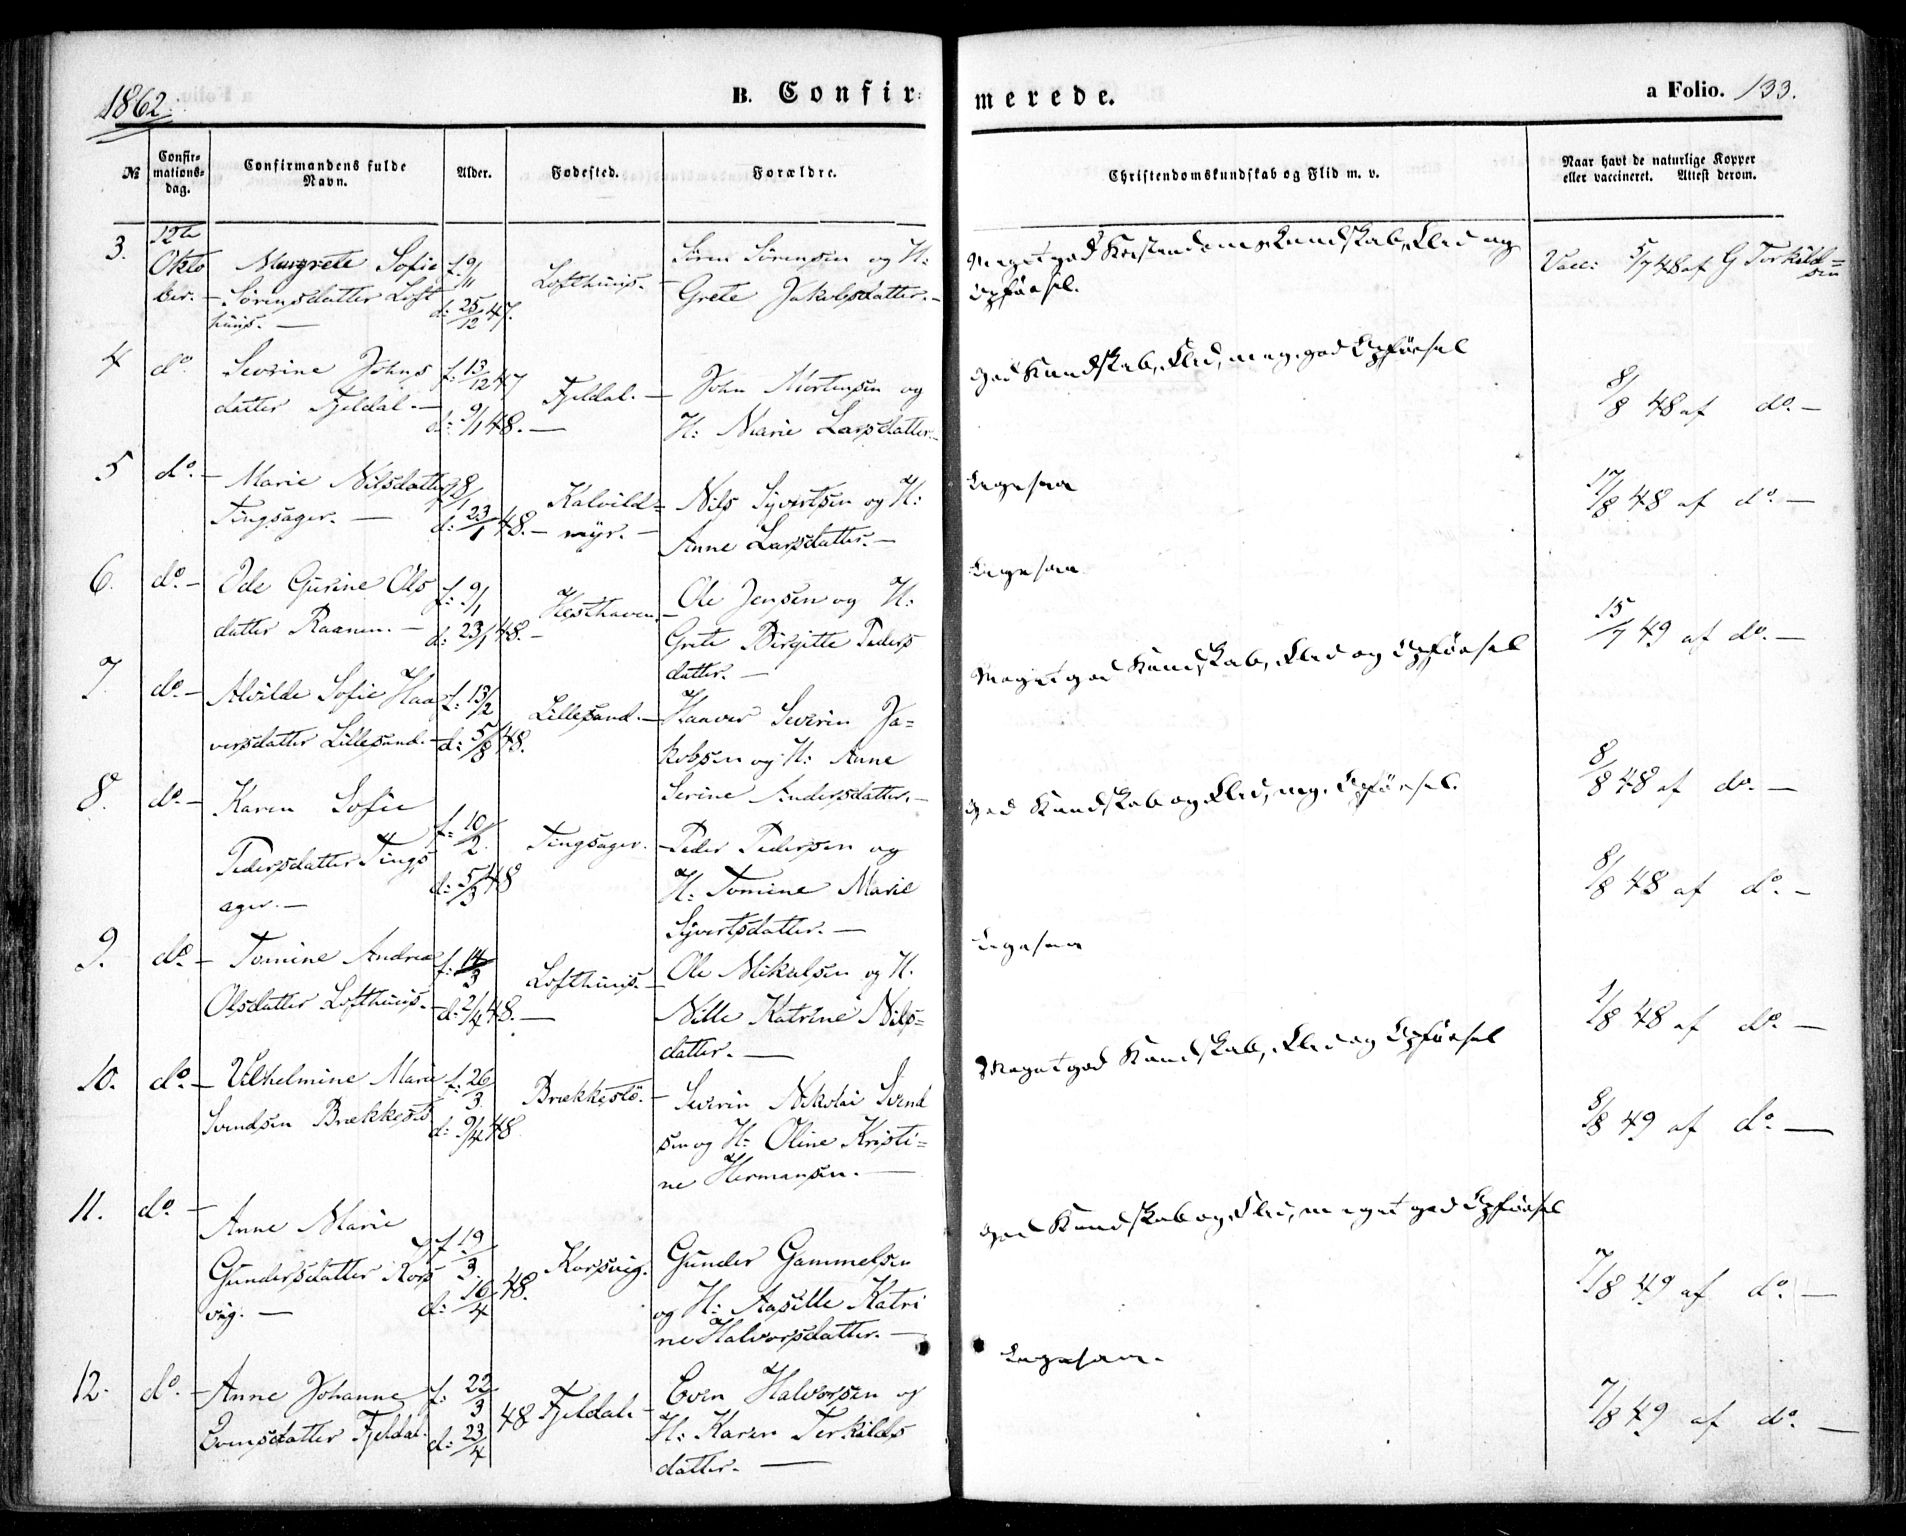 1862.
B. Confir=
merede.
a Folio. 133.
№
Confir=
mations=
dag.
Confirmandens fulde
Navn.
Alder.
Fødested.
Forældre.
Christendomskundskab og Flid m. v.
Naar havt de naturlige Kopper
eller vaccineret. Attest derom.
3.
12te
Okto
ber. –
Margrete Sofie
Sörensdatter Loft
huus. –
f: 9/11
d: 25/12 47.
Lofthuus. –
Sören Sörensen og H:
Grete Jakobsdatter. –
Meget god Kristendomskundskab, Flid og
Opförsel.
Vacc: 5/7 48 af G Torkild=
sen
4
do.
Severine Johns
datter Fjeldal. –
f: 13/12 47
d: 9/1 48. –
Fjeldal. –
John Mortensen og
H: Marie Larsdatter. –
God Kundskab, Flid, meg. god Opförsel
8/8 48 af do. –
5
do. –
Marie Nilsdatter
Tingsager. –
f: 8/1
d: 23/1 48. –
Kalvild=
myr. –
Nils Syvertsen og H:
Anne Larsdatter. –
Ligesaa
17/8 48 af do. –
6.
do. –
Ode Gurine Ols
datter Raanen. –
f: 9/1
d: 23/1 48. –
Hesthaven. –
Ole Jensen og H:
Grete Birgitte Peders
datter. –
Ligesaa
15/7 49 af do. –
7.
do. –
Alvilde Sofie Haa
versdatter Lillesand. –
f: 13/2
d: 5/8 48.
Lillesand. –
Haaver Severin Ja=
kobsen og H: Anne
Serine Andersdatter. –
Meget god Kundskab, Flid og Opförsel
8/8 48 af do. –
8.
do. –
Karen Sofie
Pedersdatter Tings
ager. –
f: 10/2.
d: 5/3 48
Tingsager. –
Peder Pedersen og
H: Tomine Marie
Syvertsdatter. –
God Kundskab og Flid, mg. Opförsel.
8/8 48 af do. –
9.
do. –
Tomine Andrea
Olsdatter Lofthuus. –
f: 14/3
d: 2/4 48. –
Lofthuus. –
Ole Mikalsen og H.
Nille Katrine Nils=
datter. –
Ligesaa
1/8 48 af do. –
10.
do. –
Vilhelmine Marie
Svendsen Brækkestö
f: 26/3.
d: 9/4 48
Brækkestö. –
Severin Nikolai Svend
sen og H: Oline Kristi=
ne Hermansen. –
Meget god Kundskab, Flid og Opförsel
8/8 49 af do. –
11.
do. –
Anne Marie
Gundersdatter Kors
vig. –
f: 19/3.
d: 16/4 48.
Korsvig.
Gunder Gammelsen
og H: Aasille Katri
ne Halvorsdatter. –
God Kundskab og Flid, meget god Opförsel
7/8 49 af do. –
12.
do. –
Anne Johanne
Evensdatter Fjeldal.
f: 22/3
d: 23/4 48
Fjeldal. –
Even Halvorsen og
H: Karen Terkilds
datter. –
Ligesaa. –
7/8 49 af do. –